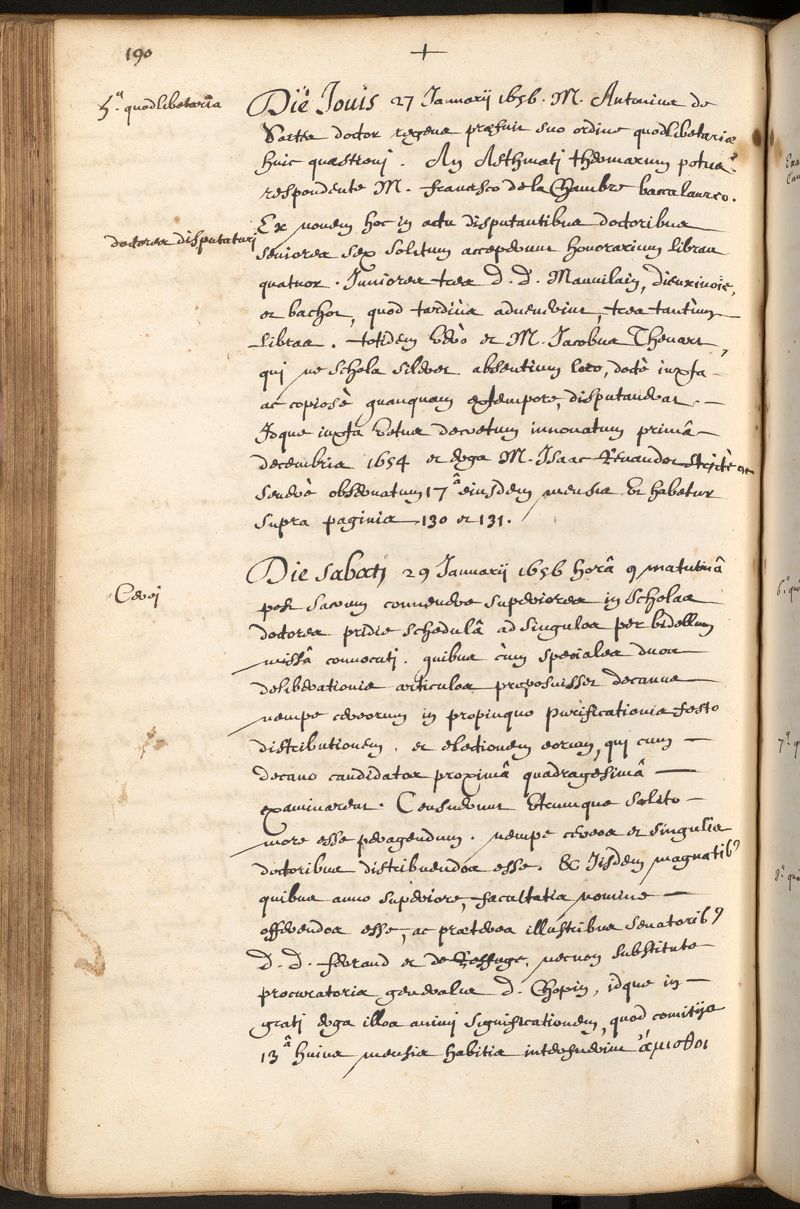 190
+
5.ª quodlibetaria
Die Jouis 27 Januarij 1656. M. Antonius de
Sartes doctor regens præfuit suo ordine quodlibetariæ
huic quæstioni. An Asthmati thermarum potus?
respondente M. francisco de la Chambre baccalaureo.
doctores disputaturi
Ex novem hoc in actu disputantibus doctoribus
seniores sex solitum acceperunt honorarium libras
quatuor. Juniores tres D. D. Mauuilain, Dieuxiuoie,
et bachot, quod tardius aduenerint, tres tantùm
libras. totidem verò et M. Jacobus Thevart,
qui ne schola sileret absentium loco, doctè iuxta
ac copiosè quanquam extempore, disputauerat.
Idque iuxta vetus decretum innouatum primâ
decembris 1654 et erga M. Isaac Renaudot strictè ac
seuerè obseruatum 17ª eiusdem mensis. Et habetur
supra paginis 130 et 131.
Cerei
Die Sabati 29 Januarij 1656 horâ 9 matutinâ
post sacrum conuenere superiores in scholas
doctores pridie schedulâ ad singulos per bidellum
missâ conuocati. quibus cùm speciales duos
deliberationis articulos proposuisset decanus
nempe cereorum in propinquo purificationis festo
distributionem. et electionem eorum, qui cum
decano candidatos proximâ quadragesimâ
examinarent. Censuerunt vtrumque solito
more esse peragendum. nempe cereos et singulis
doctoribus distribuendos esse. & Iisdem magnatib9
quibus anno superiore, facultatis nomine
offerendos esse, ac præterea illustribus senatorib9
D. D. ferrand et de necnon substituto
procuratoris generalis D. Chopin, idque in
grati erga illos animi significationem, quod comitijs
13ª huius mensis habitis interfuerint ἄμισθοι